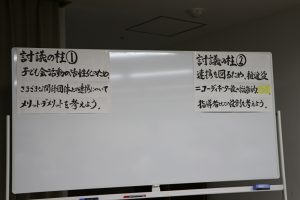 討議の柱①
子ども会活動の活性化のため、
さまざまな関係団体との連携について
メリット・デメリットを考えよう。
討議の柱②
連携を図るため、推進役
=コーディネーター役の
指導者としての役割を考えよう。